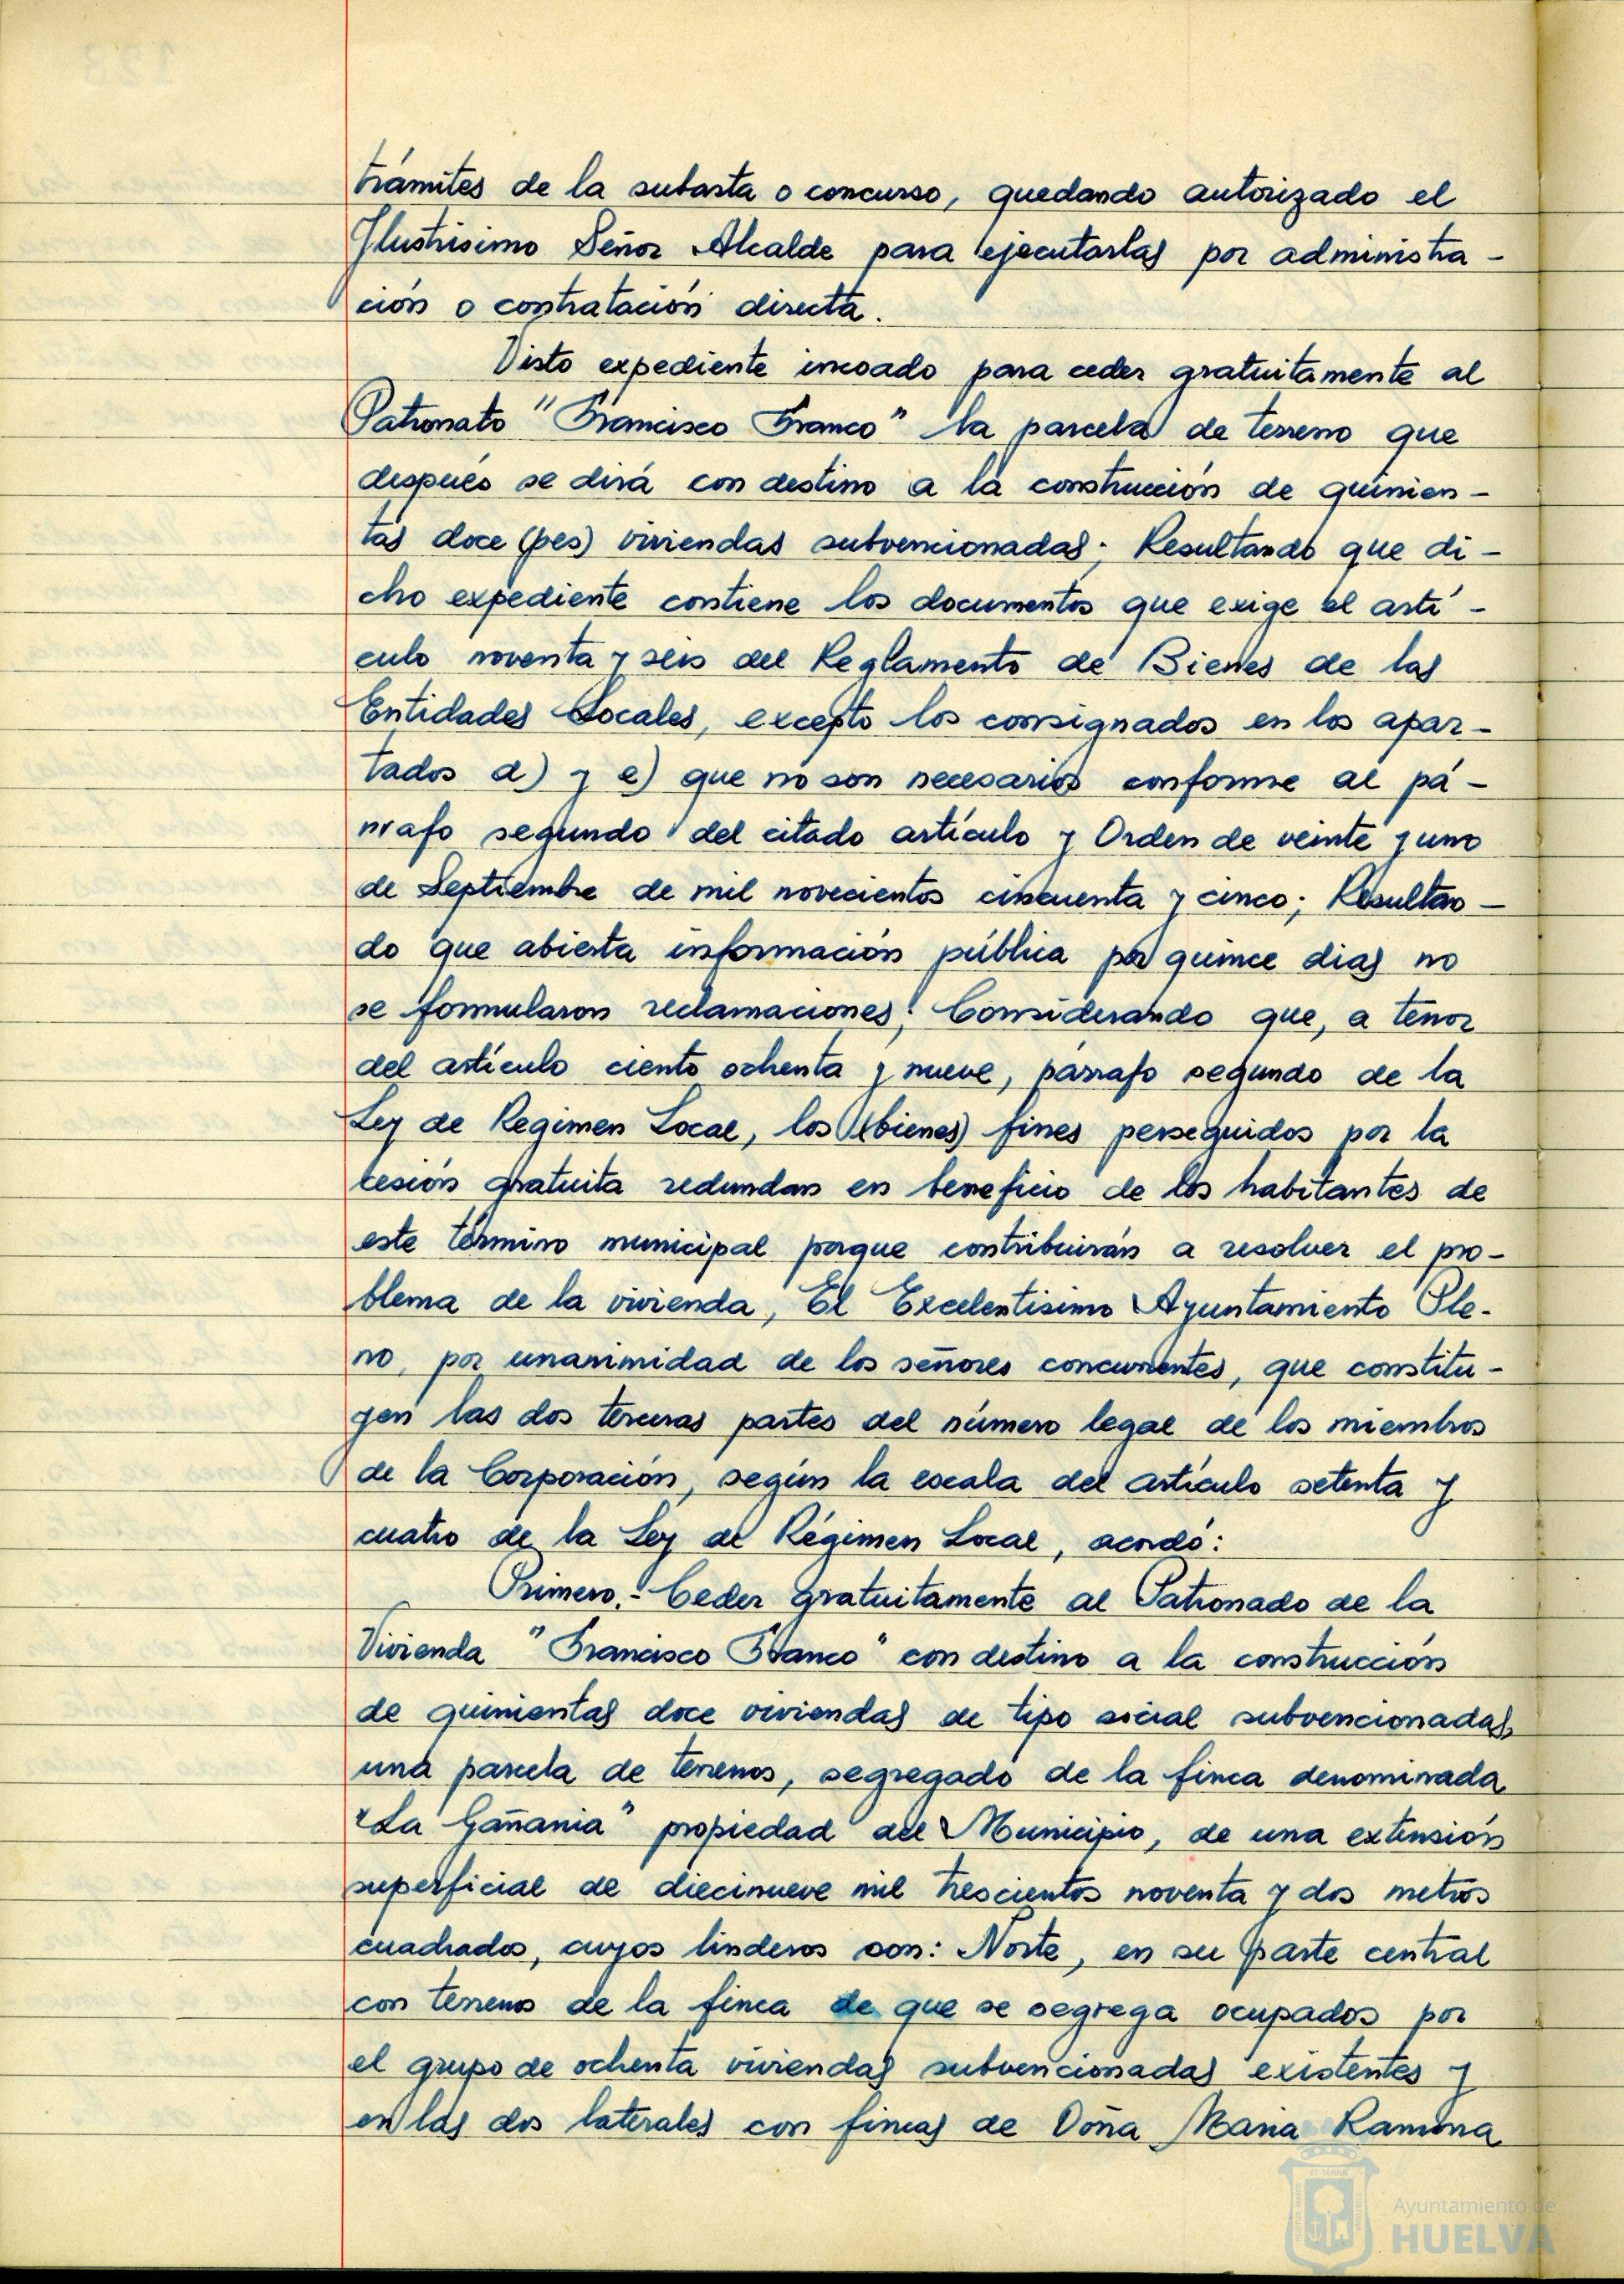 trámites de la subasta o concurso, quedando autorizado el
Ilustrisimo Señor Alcalde para ejecutarlas por administra-
ción o contratación directa.
Visto expediente incoado para ceder gratuitamente al
Patronato "Francisco Franco" la parcela de terreno que
después se dirá con destino a la construcción de quinien-
tas doce (pes) viviendas subvencionadas; Resultando que di-
cho expediente contiene los documentos que exige el artí-
culo noventa y seis del Reglamento de Bienes de las
Entidades Locales, excepto los consignados en los apar-
tados d) y e) que no son necesarios conforme al pá-
rrafo segundo del citado artículo y Orden de veinte y uno
de Septiembre de mil novecientos cincuenta y cinco; Resultan-
do que abierta información pública por quince dias no
se formularon reclamaciones; Considerando que, a tenor
del artículo ciento ochenta y nueve, párrafo segundo de la
Ley de Regimen Local, los (bienes) fines perseguidos por la
cesión gratuita redundan en beneficio de los habitantes de
este término municipal porque contribuirán a resolver el pro-
blema de la vivienda, El Excelentisimo Ayuntamiento Ple-
no, por unanimidad de los señores concurrentes, que constitu-
yen las dos terceras partes del número legal de los miembros
de la Corporación, según la escala del artículo setenta y
cuatro de la Ley de Régimen Local, acordó:
Primero.- Ceder gratuitamente al Patronado de la
Vivienda "Francisco Franco" con destino a la construcción
de quinientas doce viviendas de tipo social subvencionadas,
una parcela de terrenos, segregado de la finca denominada
"La Gañania" propiedad del Municipio, de una extensión
superficial de diecinueve mil trescientos noventa y dos metros
cuadrados, cuyos linderos son: Norte, en su parte central
con terrenos de la finca de que se segrega ocupados por
el grupo de ochenta viviendas subvencionadas existentes y
en las dos laterales con fincas de Doña Maria Ramona
Ayuntamiento de
HUELVA